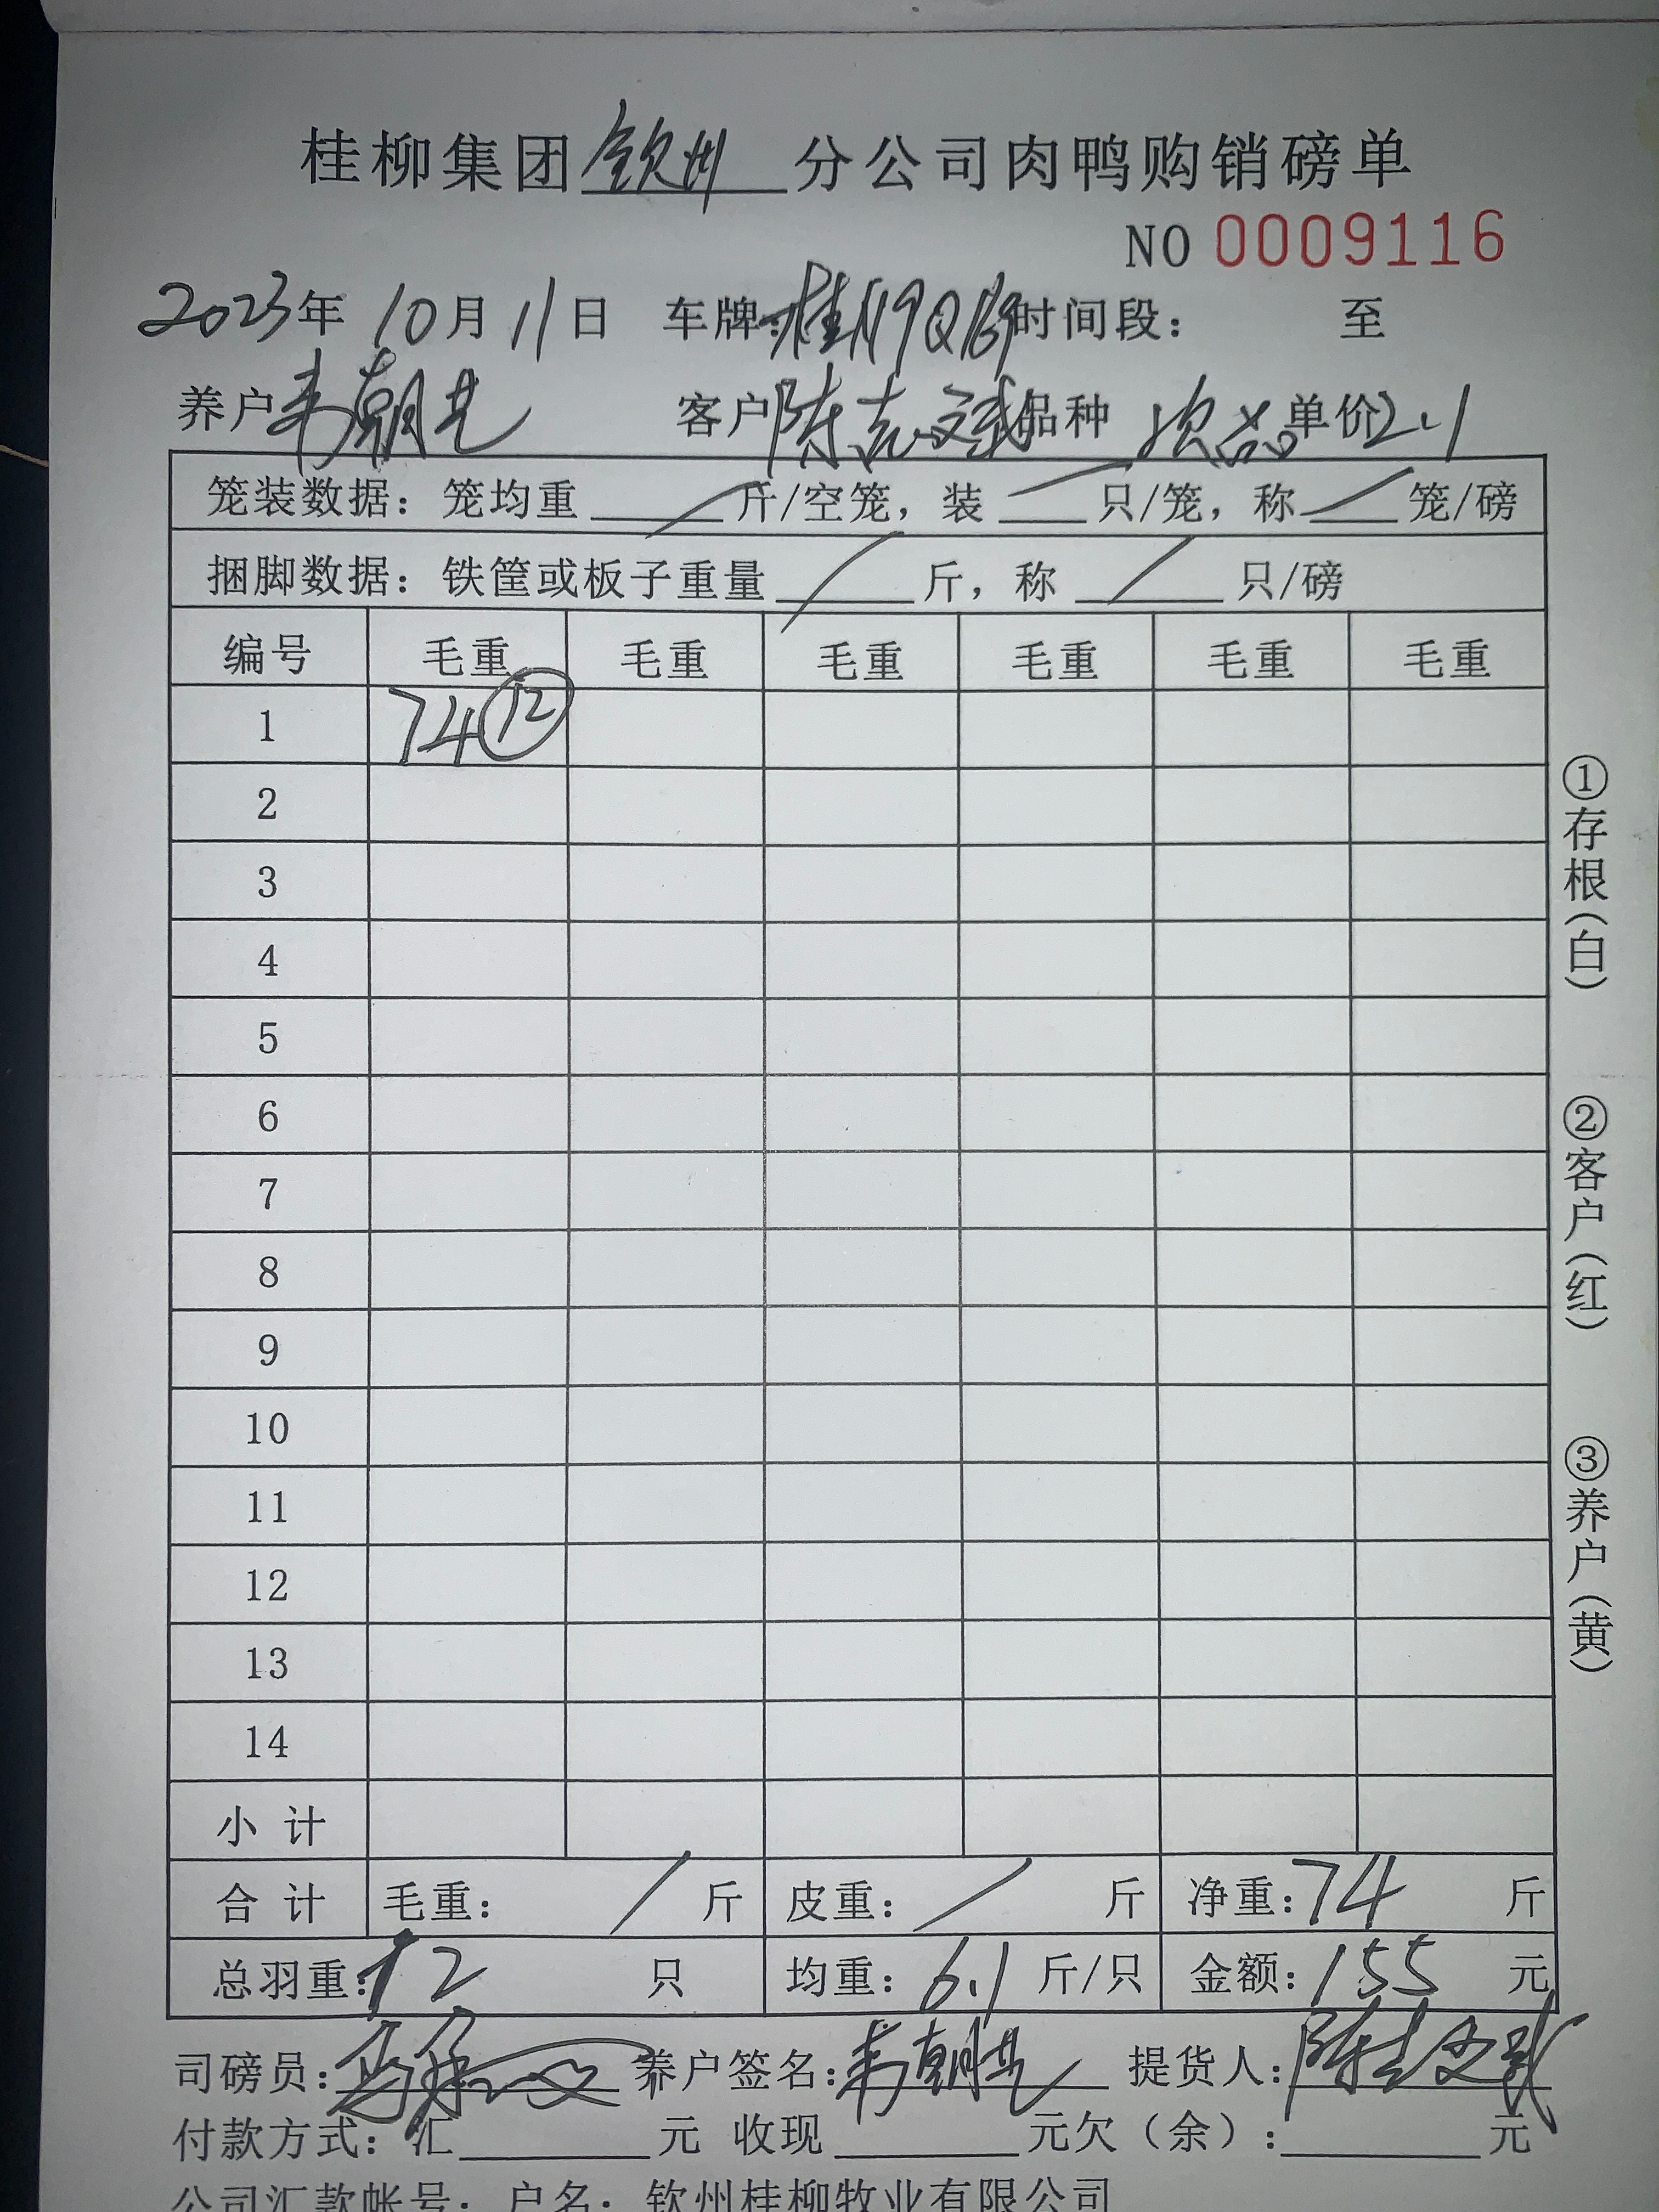 桂柳集团钦州分公司肉鸭购销磅单
NO 0009116
2023年10月11日 车牌:桂N9Q 时间段: 至
养户韦朝 客户陈 品种 次品 单价2.1
笼装数据:笼均重 / 斤/空笼,装 / 只/笼,称 / 笼/磅
捆脚数据:铁筐或板子重量 / 斤,称 / 只/磅
编号 毛重 毛重 毛重 毛重 毛重 毛重
1 74 ⑫
2
3
4
5
6
7
8
9
10
11
12
13
14
小 计
合 计 毛重: / 斤 皮重: / 斤 净重:74 斤
总羽重:12 只 均重:6.1 斤/只 金额:155 元
司磅员: 养户签名:韦朝 提货人:陈
付款方式:汇 元 收现 元欠(余): 元
公司汇款帐号:户名:钦州桂柳牧业有限公司
①存根(白)
②客户(红)
③养户(黄)